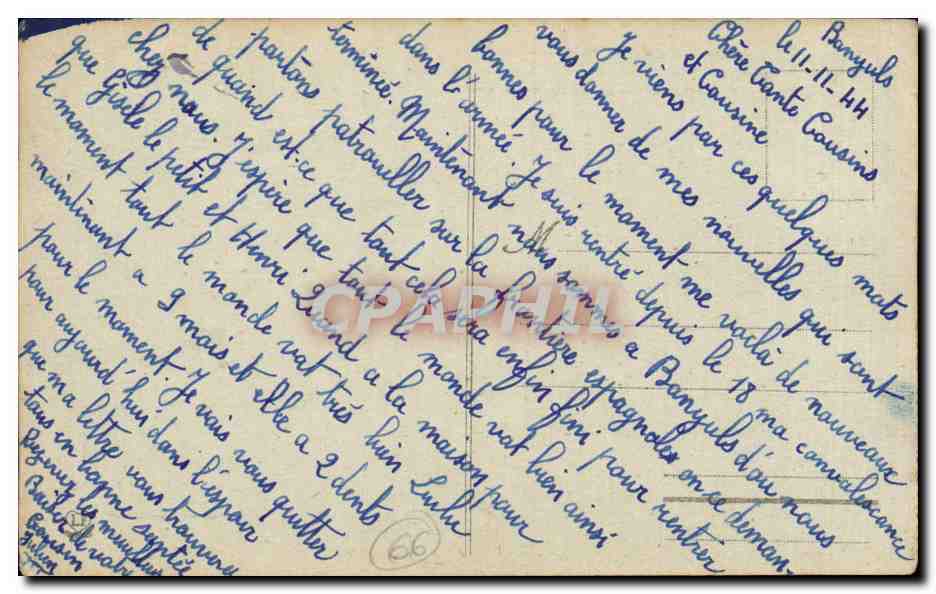 Banyuls
le 11-11-44
Chère Tante Cousins
et Cousine
Je viens par ces quelques mots
vous donner de mes nouvelles qui sont
bonnes pour le moment me voclà de nouveaux
dans l'année. Je suis rentré depuis le 18 ma convalescance
terminé. Maintenant nous sommes a Banyuls d'où nous
partons patrouiller sur la frontière espagnoles on ce deman-
de quand est-ce que tout cela sera enfin fini pour rentrer
chez nous. J'espère que tous le monde vat bien ainsi
que Gisèle le petit et Henri. Quand a la maison pour
le moment tout le monde vat très bien Lulu
maintenant a 9 mois et elle a 2 dents
pour le moment. Je vais vous quitter
pour aujourd'hui dans l'espoir
que ma lettre vous trouvera
tous en bonne santée
Recevez les meilleurs
Baiser de votre
Cousin
CPAPHIL
66